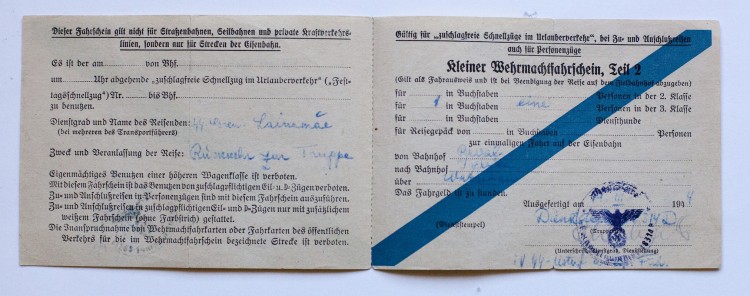 Dieser Fahrschein gilt nicht für Straßenbahnen, Seilbahnen und private Kraftverkehrs-
linien, sondern nur für Strecken der Eisenbahn.
Es ist der am von Bhf.
um Uhr abgehende „zuschlagfreie Schnellzug im Urlauberverkehr“ („Fest-
tagsschnellzug“) Nr. bis Bhf.
zu benutzen.
Dienstgrad und Name des Reisenden:
(bei mehreren des Transportführers)
Zweck und Veranlassung der Reise: zur Truppe
Eigenmächtiges Benutzen einer höheren Wagenklasse ist verboten.
Mit diesem Fahrschein ist das Benutzen von zuschlagpflichtigen Eil- u. D-Zügen verboten.
Zu- und Anschlußreisen in Personenzügen sind mit diesem Fahrschein auszuführen.
Zu- und Anschlußreisen in zuschlagpflichtigen Eil- und D-Zügen nur mit zusätzlichem
weißen Fahrschein (ohne Farbstrich) gestattet.
Die Inanspruchnahme von Wehrmachtfahrkarten oder Fahrkarten des öffentlichen
Verkehrs für die im Wehrmachtfahrschein bezeichnete Strecke ist verboten.
Gültig für „zuschlagfreie Schnellzüge im Urlauberverkehr“, bei Zu- und Anschlußreisen
auch für Personenzüge
Kleiner Wehrmachtfahrschein, Teil 2
(Gilt als Fahrausweis und ist bei Beendigung der Reise auf dem Zielbahnhof abzugeben)
für in Buchstaben Personen in der 2. Klasse
für 1 in Buchstaben eine Personen in der 3. Klasse
für in Buchstaben Diensthunde
für Reisegepäck von in Buchstaben Personen
zur einmaligen Fahrt auf der Eisenbahn
von Bahnhof
nach Bahnhof
über
Das Fahrgeld ist zu stunden.
Ausgefertigt am 194
(Dienststempel)
(Unterschrift, Dienstgrad, Dienststellung)